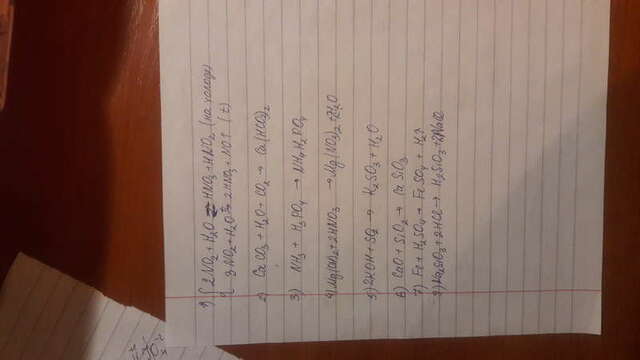 1) { 2NO2 + H2O ⇌ HNO3 + HNO2 (на холоде)
3NO2 + H2O → 2HNO3 + NO↑ (t)
2) CaCO3 + H2O + CO2 → Ca(HCO3)2
3) NH3 + H3PO4 → NH4H2PO4
4) Mg(OH)2 + 2HNO3 → Mg(NO3)2 + 2H2O
5) 2KOH + SO2 → K2SO3 + H2O
6) CaO + SiO2 → CaSiO3
7) Fe + H2SO4 → FeSO4 + H2↑
8) Na2SiO3 + 2HCl → H2SiO3 + 2NaCl